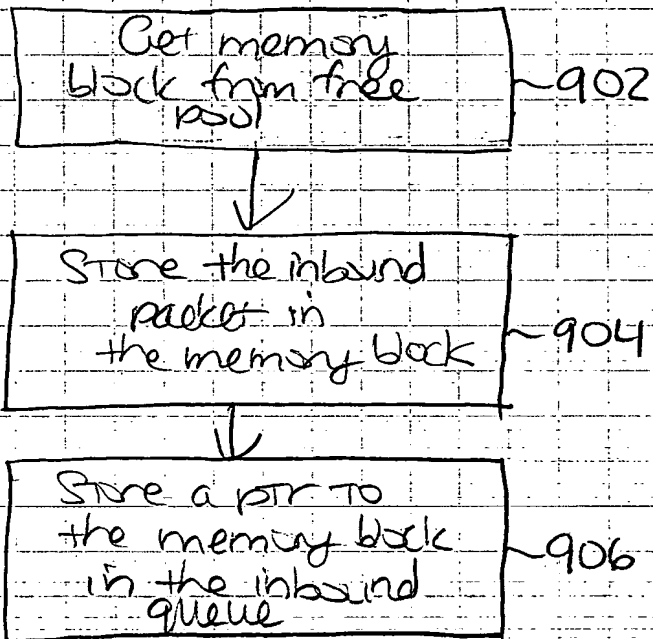 Get memory
block from free
pool
902
Store the inbound
packet in
the memory block
904
Store a ptr to
the memory block
in the inbound
queue
906